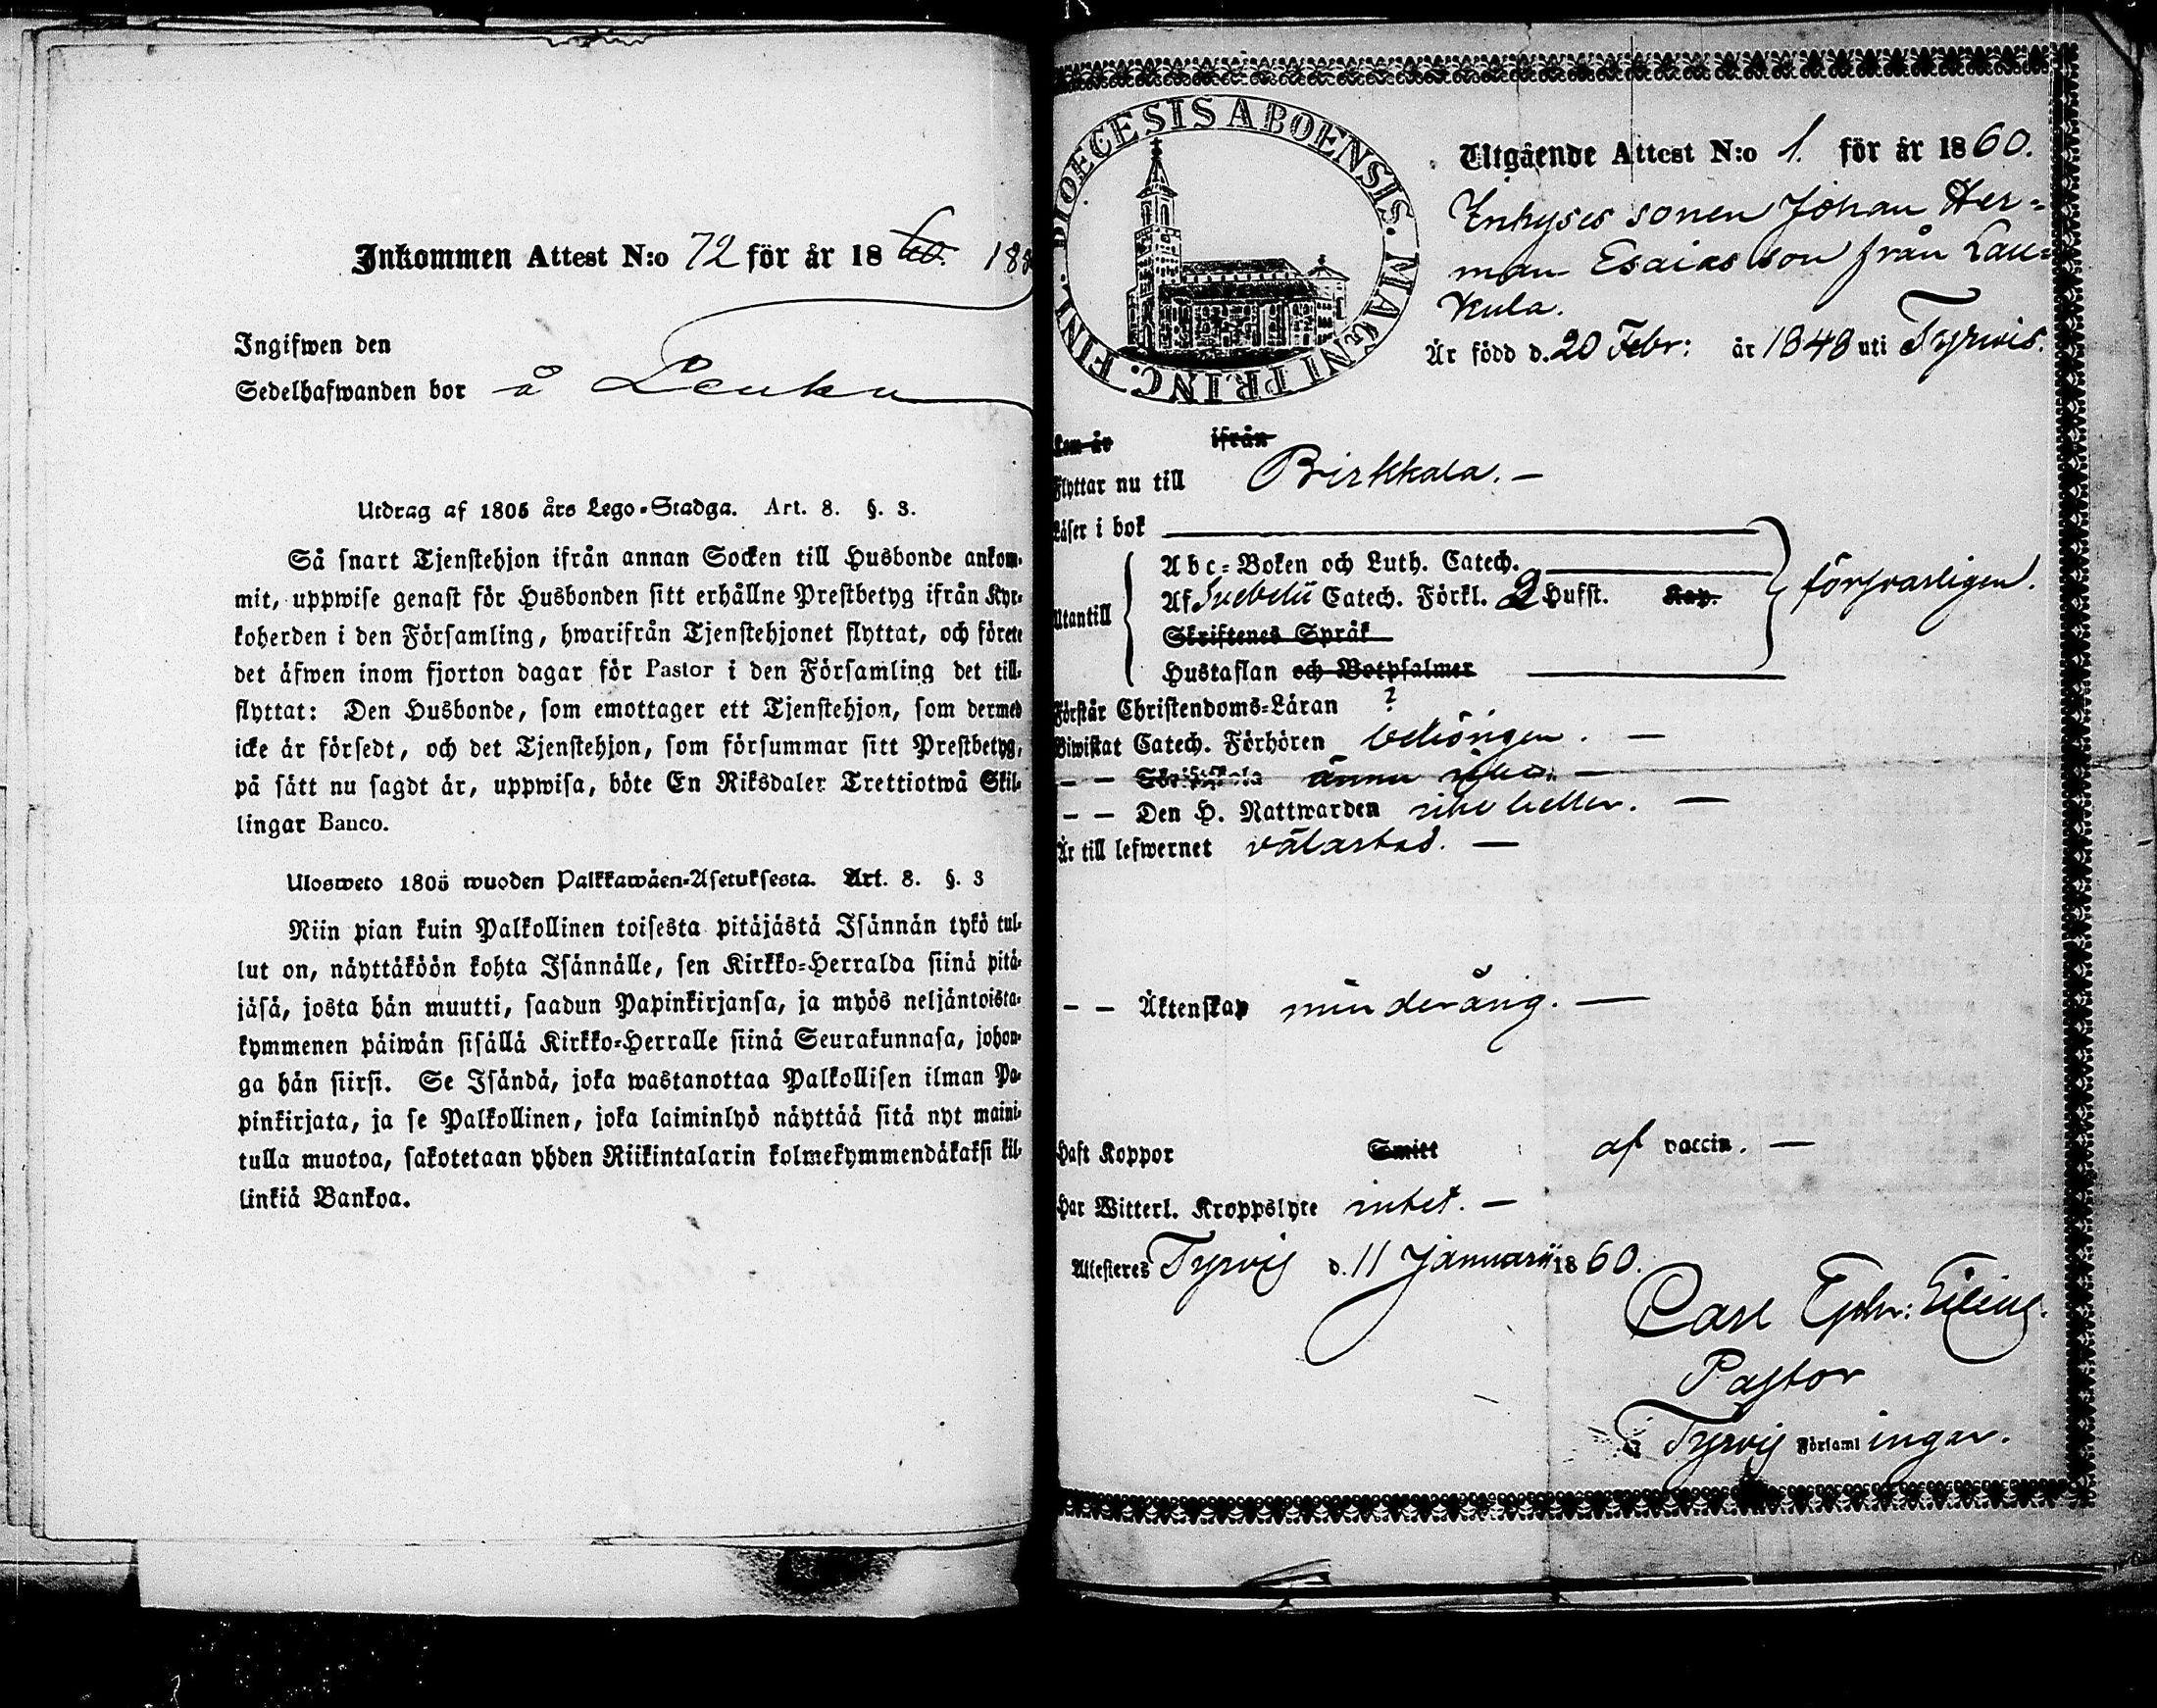 Inkommen Attest N:o 72 för år 18 60. 188
Ingifwen den
Sedelhafwanden bor å Leuku
Utdrag af 1805 års Lego-Stadga. Art. 8. §. 3.
Så snart Tjenstehjon ifrån annan Socken till Husbonde ankom-
mit, uppwise genast för Husbonden sitt erhållne Prestbetyg ifrån Kyr-
koherden i den Församling, hwarifrån Tjenstehjonet flyttat, och förete
det äfwen inom fjorton dagar för Pastor i den Församling det till-
flyttat: Den Husbonde, som emottager ett Tjenstehjon, som dermed
icke är försedt, och det Tjenstehjon, som försummar sitt Prestbetyg,
på sätt nu sagdt är, uppwisa, böte En Riksdaler Trettiotwå Skil-
lingar Banco.
Ulosweto 1805 wuoden Palkkawäen-Asetuksesta. Art. 8. §. 3
Niin pian kuin Palkollinen toisesta pitäjästä Isännän tykö tul-
lut on, näyttäköön kohta Isännälle, sen Kirkko-Herralda siinä pitä-
jäsä, josta hän muutti, saadun Papinkirjansa, ja myös neljäntoista-
kymmenen päiwän sisällä Kirkko-Herralle siinä Seurakunnasa, johon-
ga hän siirsi. Se Isändä, joka wastanottaa Palkollisen ilman Pa-
pinkirjata, ja se Palkollinen, joka laiminlyö näyttää sitä nyt maini-
tulla muotoa, sakotetaan yhden Riikintalarin kolmekymmendäkaksi kil-
linkiä Bankoa.
DIOECESIS ABOENSIS. MAGNI PRINC. FINL.
Utgående Attest N:o 1. för år 1860.
Inhyses sonen Johan Her-
man Esaias son från Lau-
kula.
Är född d. 20 Febr: år 1848 uti Tyrwis.
Kom år ifrån
Flyttar nu till Birkkala. —
Läser i bok
Abc-Boken och Luth. Catech.
Utantill Af Svebelii Catech. Förkl. 2 Hufst. Kap. försvarligen.
Skriftenes Språk
Hustaflan och Botpsalmer
Förstår Christendoms-Läran ?
Biwistat Catech. Förhören behörigen. —
— — Skriftskola ännu icke. —
— — Den H. Nattwarden icke heller. —
Är till lefwernet välartad. —
— — Äktenskap minderårig. —
Haft Koppor Smitt af vaccin. —
Har Witterl. Kroppslyte intet. —
Attesteres Tyrvis d. 11 Januarii 1860.
Carl
Pastor
i Tyrvis Församlingar.